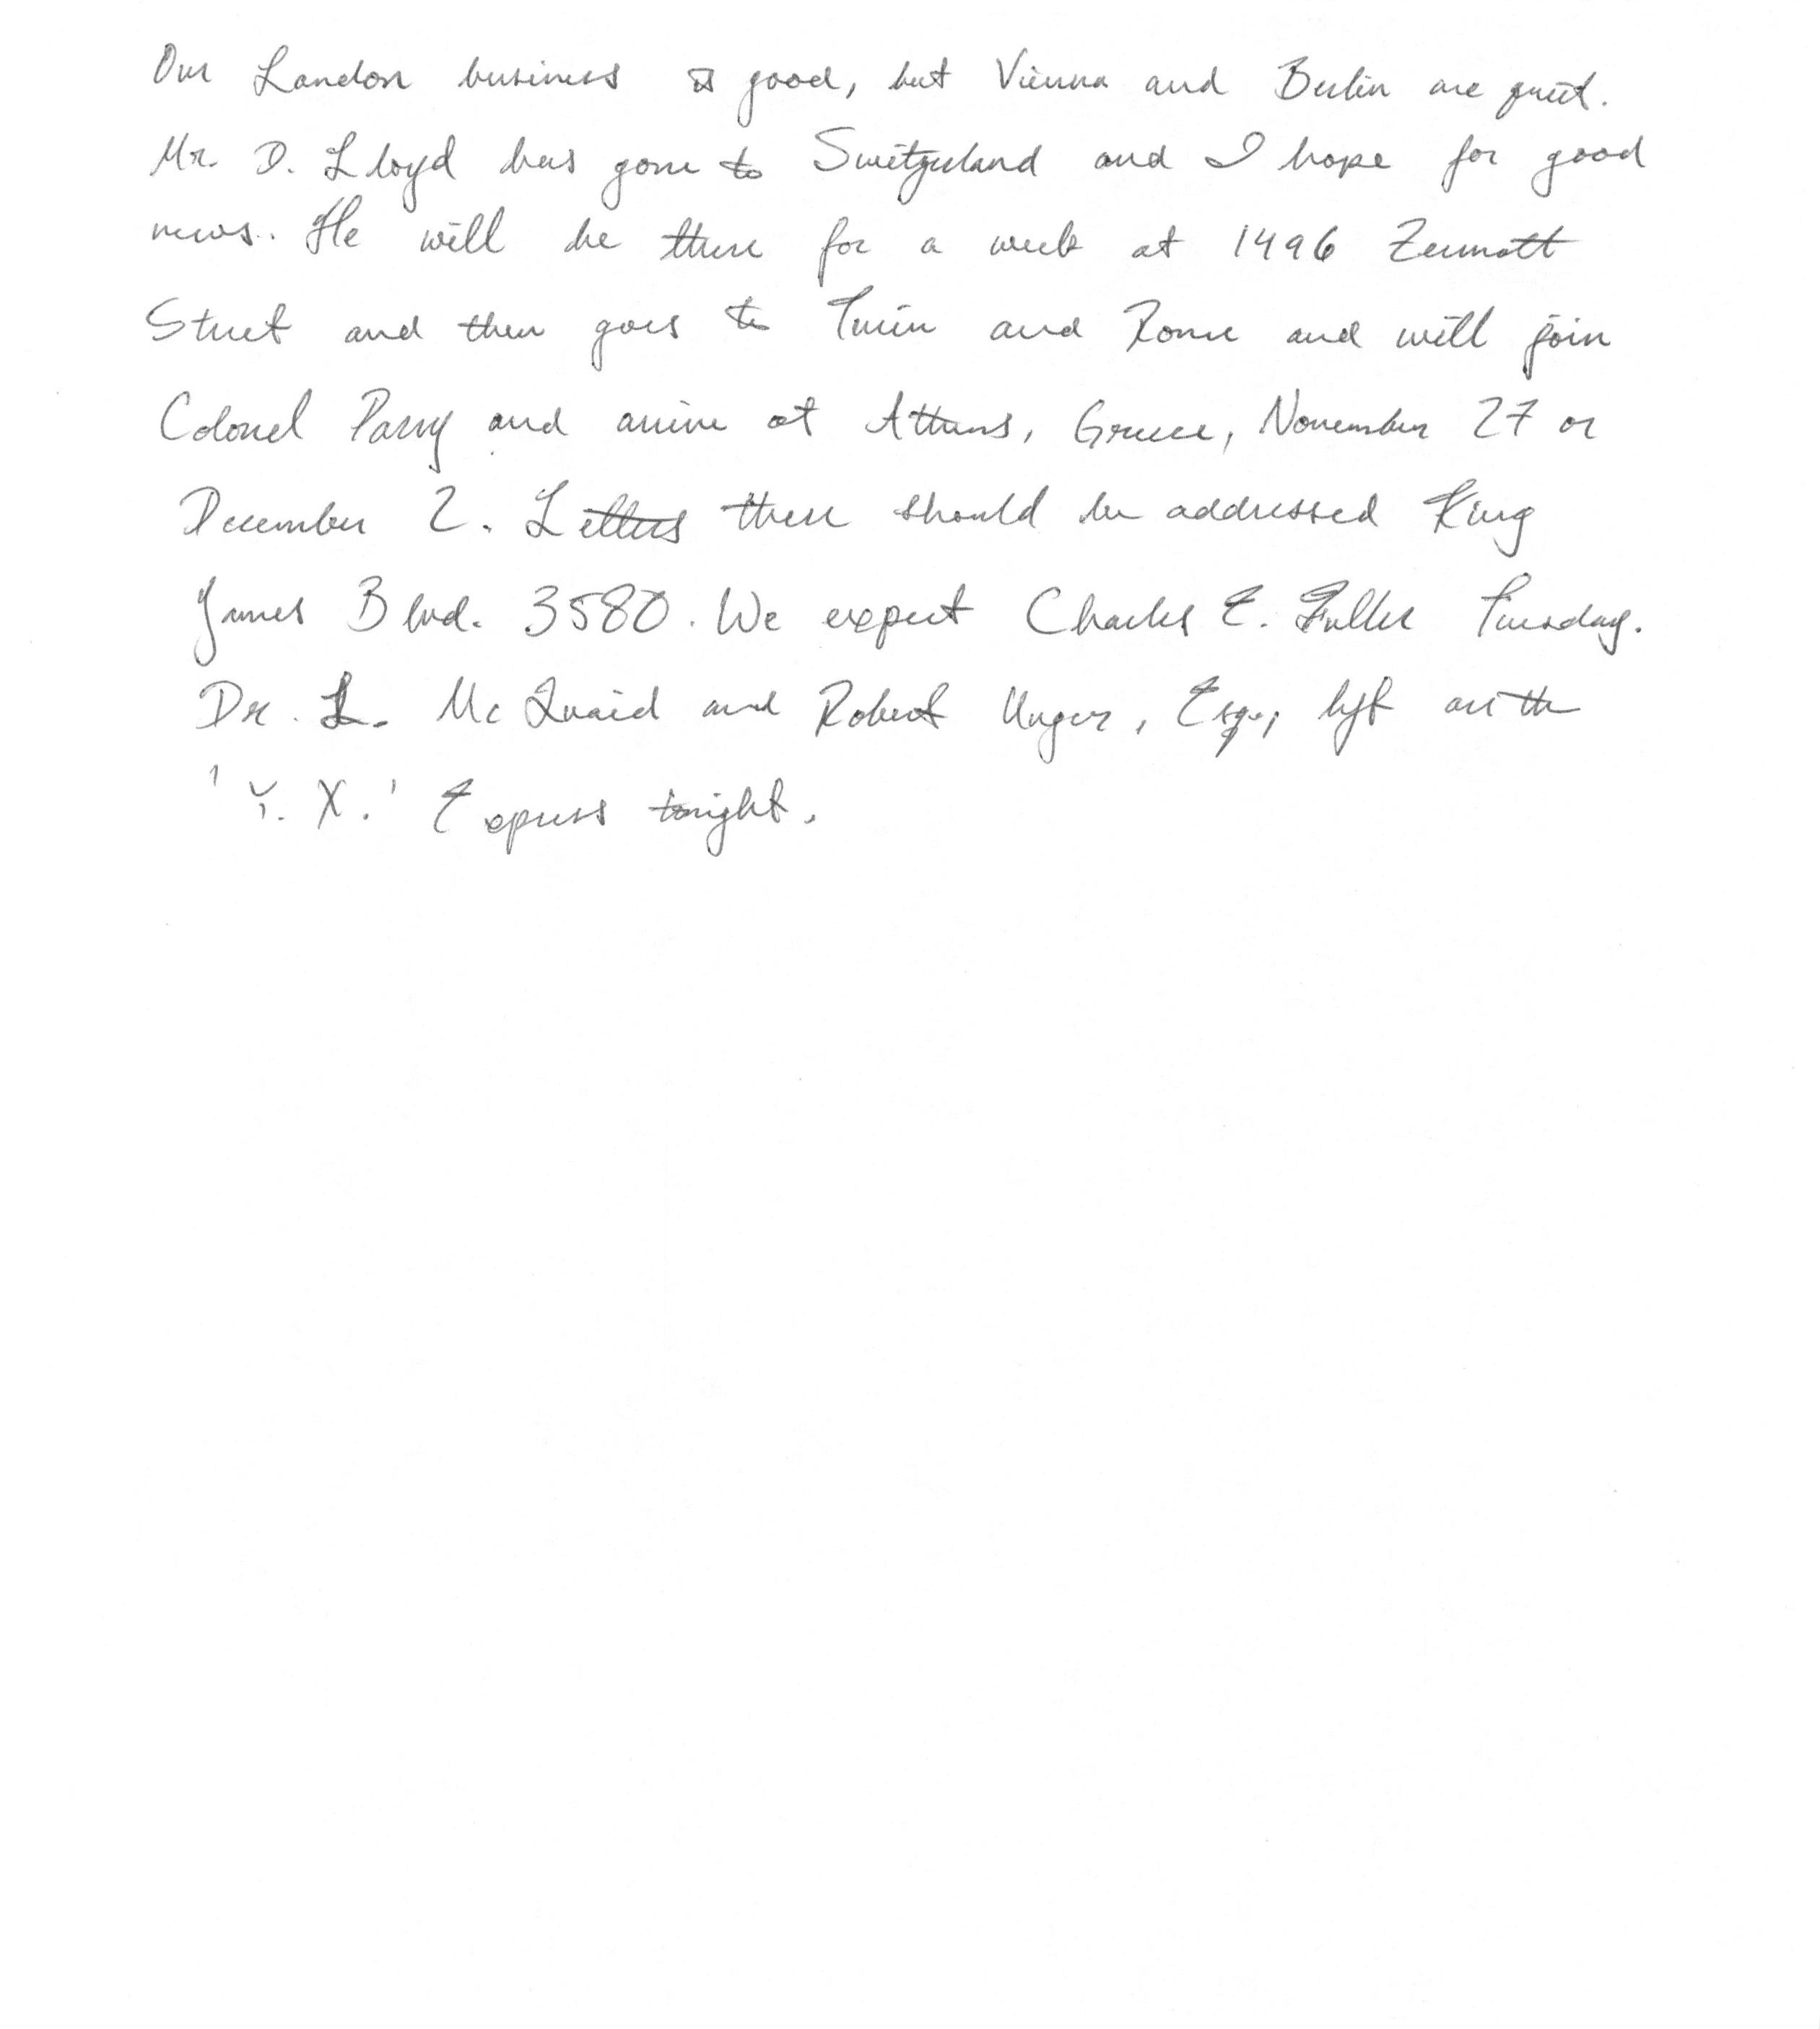 Our London business is good, but Vienna and Berlin are quiet.
Mr. D. Lloyd has gone to Switzerland and I hope for good
news. He will be there for a week at 1496 Zermott
Street and then goes to Turin and Rome and will join
Colonel Parry and arrive at Athens, Greece, November 27 or
December 2. Letters there should be addressed King
James Blvd. 3580. We expect Charles E. Fuller Tuesday.
Dr. L. Mc Quaid and Robert Unger, Esq., left on the
'Y. X.' Express tonight.